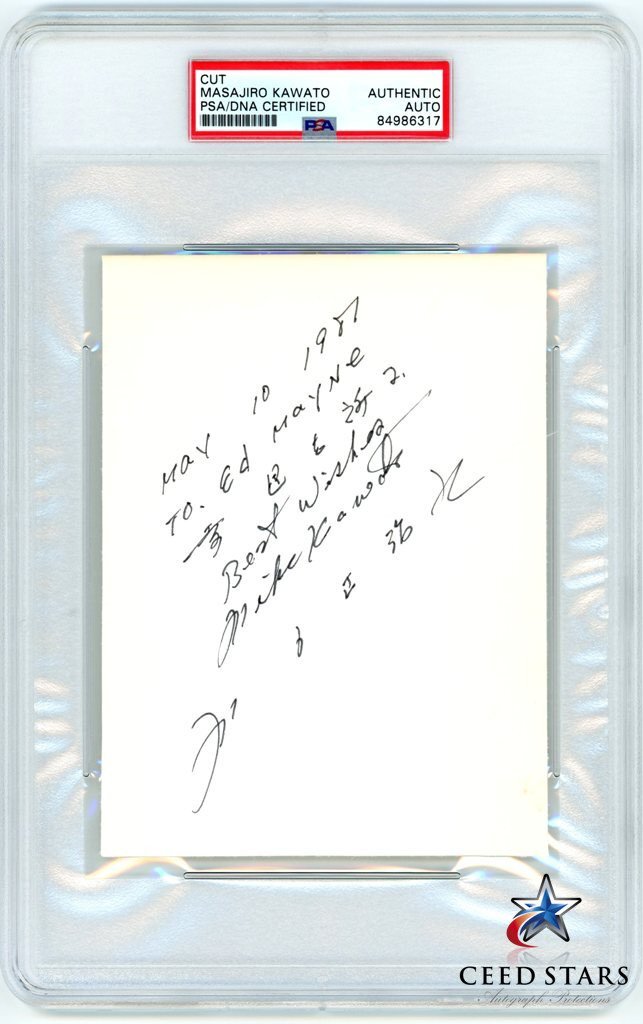 CUT
MASAJIRO KAWATO
PSA/DNA CERTIFIED
AUTHENTIC
AUTO
84986317
PSA
MAY 10 1981
TO. Ed MAYNE
Best Wishes
Mike Kawato
CEED STARS
Autograph Protections